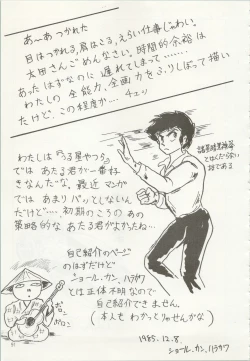 あ〜あ つかれた
目はつかれる、肩はこる、えらい仕事じゃわい。
太田さんごめんなさい。時間的余裕は
あったはずなのに 遅れてしまって……
わたしの 全能力、全画力をふりしぼって描い
たけど、この程度か…… チェッ
わたしは『うる星やつら』
では あたる君が一番好
きなんだな。最近 マンガ
では あまり パッとしないん
だけど…… 初期のころの あの
策略的な あたる君がよかったね…
自己紹介のページ
のはずだけど
ショール・カン・ハラサワ
では正体不明なので
自己紹介できません。
(本人も わかってりゃせんかな)
1985.12.8
ショール.カン.ハラサワ